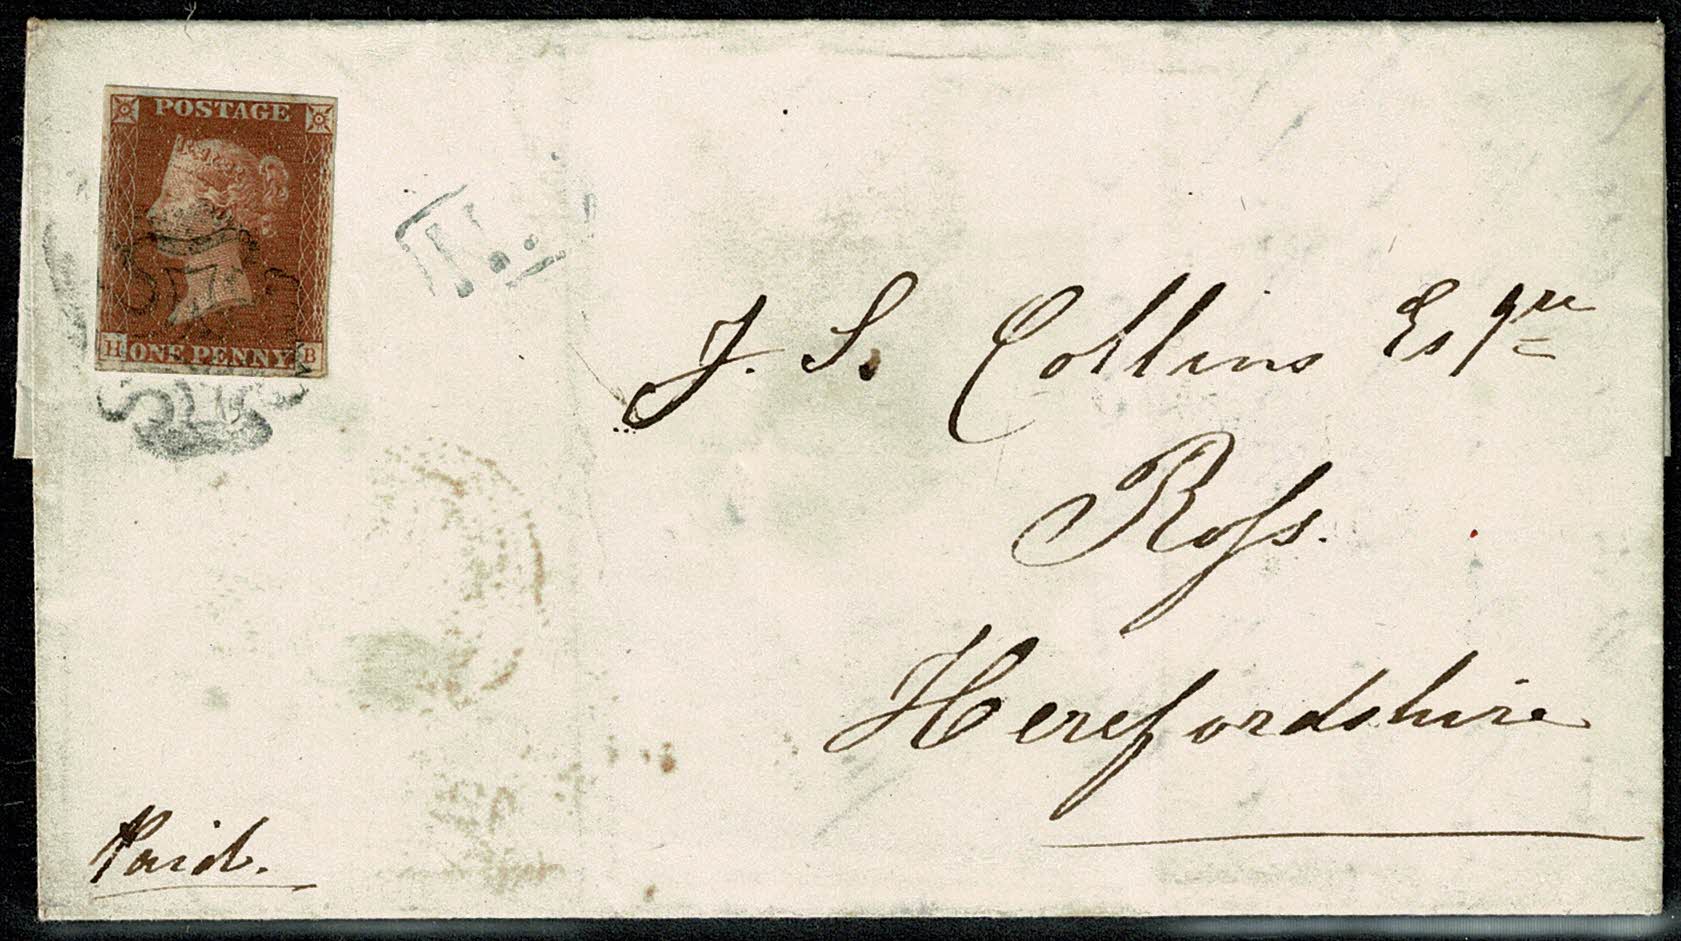 POSTAGE
H ONE PENNY B
N.
J. S. Collins Esqre
Roſs.
Herefordshire
Paid.